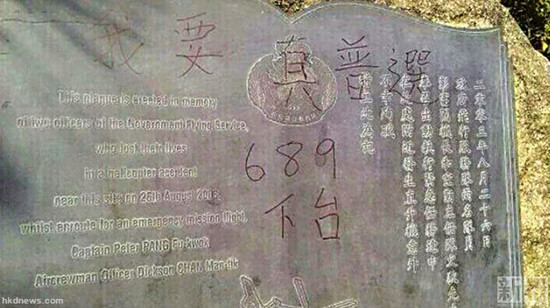 我要真普選
689
下台
This plaque is erected in memory
of two officers of the Government Flying Service,
who lost their lives
in a helicopter accident
near this site on 26th August 2003
whilst enroute for an emergency mission flight.
Captain Peter PANG Fu-kwok
Aircrewman Officer Dickson CHAN Man-tik
二零零三年八月二十六日
政府飛行服務隊兩名隊員
彭富國機長和空勤主任陳文
奉召出動執行緊急任務途中
在此處附近發生直升機意外
不幸殉職
特立此為記
hkdnews.com